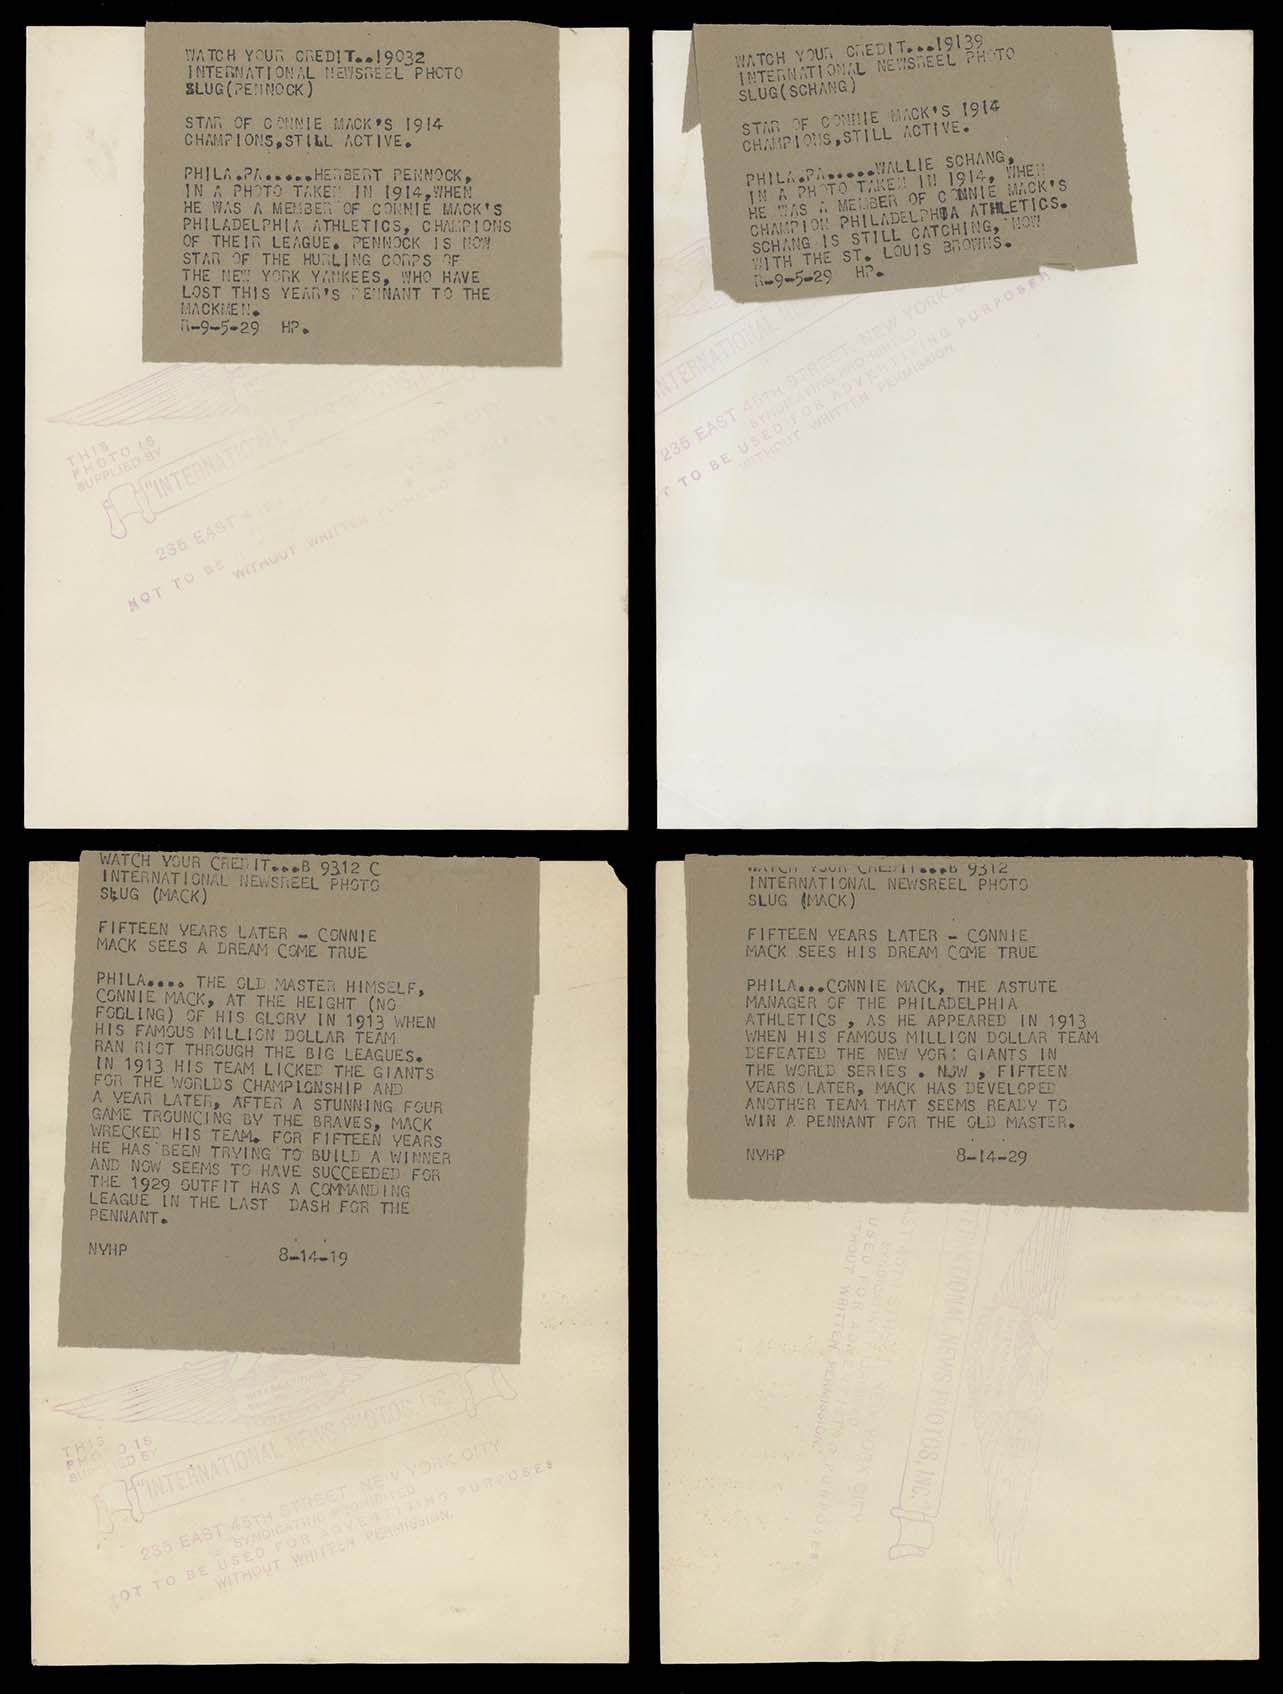 WATCH YOUR CREDIT..19032
INTERNATIONAL NEWSREEL PHOTO
SLUG(PENNOCK)
STAR OF CONNIE MACK'S 1914
CHAMPIONS,STILL ACTIVE.
PHILA.PA.....HERBERT PENNOCK,
IN A PHOTO TAKEN IN 1914,WHEN
HE WAS A MEMBER OF CONNIE MACK'S
PHILADELPHIA ATHLETICS, CHAMPIONS
OF THEIR LEAGUE. PENNOCK IS NOW
STAR OF THE HURLING CORPS OF
THE NEW YORK YANKEES, WHO HAVE
LOST THIS YEAR'S PENNANT TO THE
MACKMEN.
R-9-5-29 HP.
THIS
PHOTO IS
SUPPLIED BY
"INTERNATIONAL
235 EAST
NOT TO BE
WITHOUT WRITTEN
WATCH YOUR CREDIT...19139
INTERNATIONAL NEWSREEL PHOTO
SLUG(SCHANG)
STAR OF CONNIE MACK'S 1914
CHAMPIONS,STILL ACTIVE.
PHILA.PA.....WALLIE SCHANG,
IN A PHOTO TAKEN IN 1914, WHEN
HE WAS A MEMBER OF CONNIE MACK'S
CHAMPION PHILADELPHIA ATHLETICS.
SCHANG IS STILL CATCHING, NOW
WITH THE ST. LOUIS BROWNS.
R-9-5-29 HP.
INTERNATIONAL
235 EAST 45TH STREET, NEW YORK
SYNDICATING PROHIBITED
T TO BE USED FOR ADVERTISING PURPOSES
WITHOUT WRITTEN PERMISSION
WATCH YOUR CREDIT...B 9312 C
INTERNATIONAL NEWSREEL PHOTO
SLUG (MACK)
FIFTEEN YEARS LATER - CONNIE
MACK SEES A DREAM COME TRUE
PHILA.... THE OLD MASTER HIMSELF,
CONNIE MACK, AT THE HEIGHT (NO
FOOLING) OF HIS GLORY IN 1913 WHEN
HIS FAMOUS MILLION DOLLAR TEAM
RAN RIOT THROUGH THE BIG LEAGUES.
IN 1913 HIS TEAM LICKED THE GIANTS
FOR THE WORLDS CHAMPIONSHIP AND
A YEAR LATER, AFTER A STUNNING FOUR
GAME TROUNCING BY THE BRAVES, MACK
WRECKED HIS TEAM. FOR FIFTEEN YEARS
HE HAS BEEN TRYING TO BUILD A WINNER
AND NOW SEEMS TO HAVE SUCCEEDED FOR
THE 1929 OUTFIT HAS A COMMANDING
LEAGUE IN THE LAST DASH FOR THE
PENNANT.
NYHP 8-14-19
THIS
"INTERNATIONAL NEWS PHOTOS, INC."
235 EAST 45TH STREET NEW YORK CITY
SYNDICATING PROHIBITED
NOT TO BE USED FOR ADVERTISING PURPOSES
WITHOUT WRITTEN PERMISSION.
WATCH YOUR CREDIT...B 9312
INTERNATIONAL NEWSREEL PHOTO
SLUG (MACK)
FIFTEEN YEARS LATER - CONNIE
MACK SEES HIS DREAM COME TRUE
PHILA...CONNIE MACK, THE ASTUTE
MANAGER OF THE PHILADELPHIA
ATHLETICS , AS HE APPEARED IN 1913
WHEN HIS FAMOUS MILLION DOLLAR TEAM
DEFEATED THE NEW YORK GIANTS IN
THE WORLD SERIES . NOW , FIFTEEN
YEARS LATER, MACK HAS DEVELOPED
ANOTHER TEAM THAT SEEMS READY TO
WIN A PENNANT FOR THE OLD MASTER.
NYHP 8-14-29
NATIONAL NEWS PHOTOS, INC."
YORK CITY
USED FOR ADVERTISING PURPOSES
THOUT WRITTEN PERMISSION.